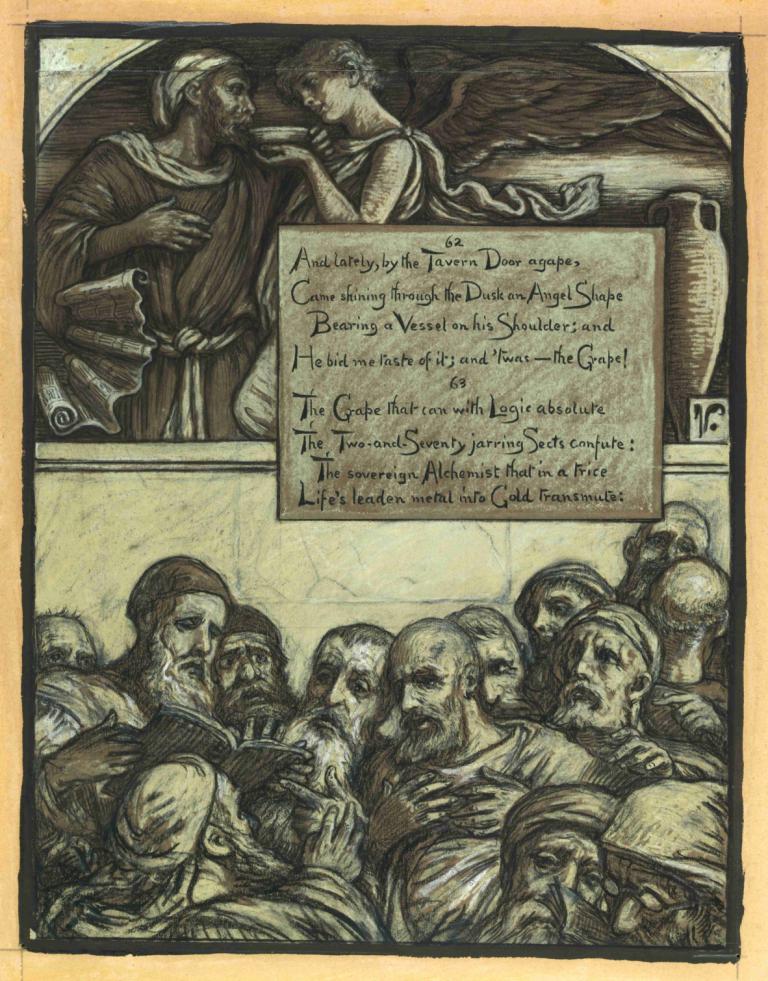 62
And lately, by the Tavern Door agape,
Came shining through the Dusk an Angel Shape
Bearing a Vessel on his Shoulder; and
He bid me taste of it; and 'twas — the Grape!
63
The Grape that can with Logic absolute
The Two-and-Seventy jarring Sects confute:
The sovereign Alchemist that in a trice
Life's leaden metal into Gold transmute:
V.